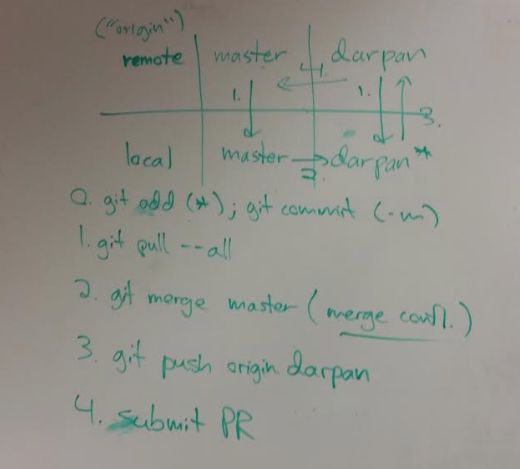 ("origin")
remote master darpan
4.
1. 1.
3.
local master darpan*
2.
0. git add (*); git commit (-m)
1. git pull --all
2. git merge master (merge confl.)
3. git push origin darpan
4. submit PR